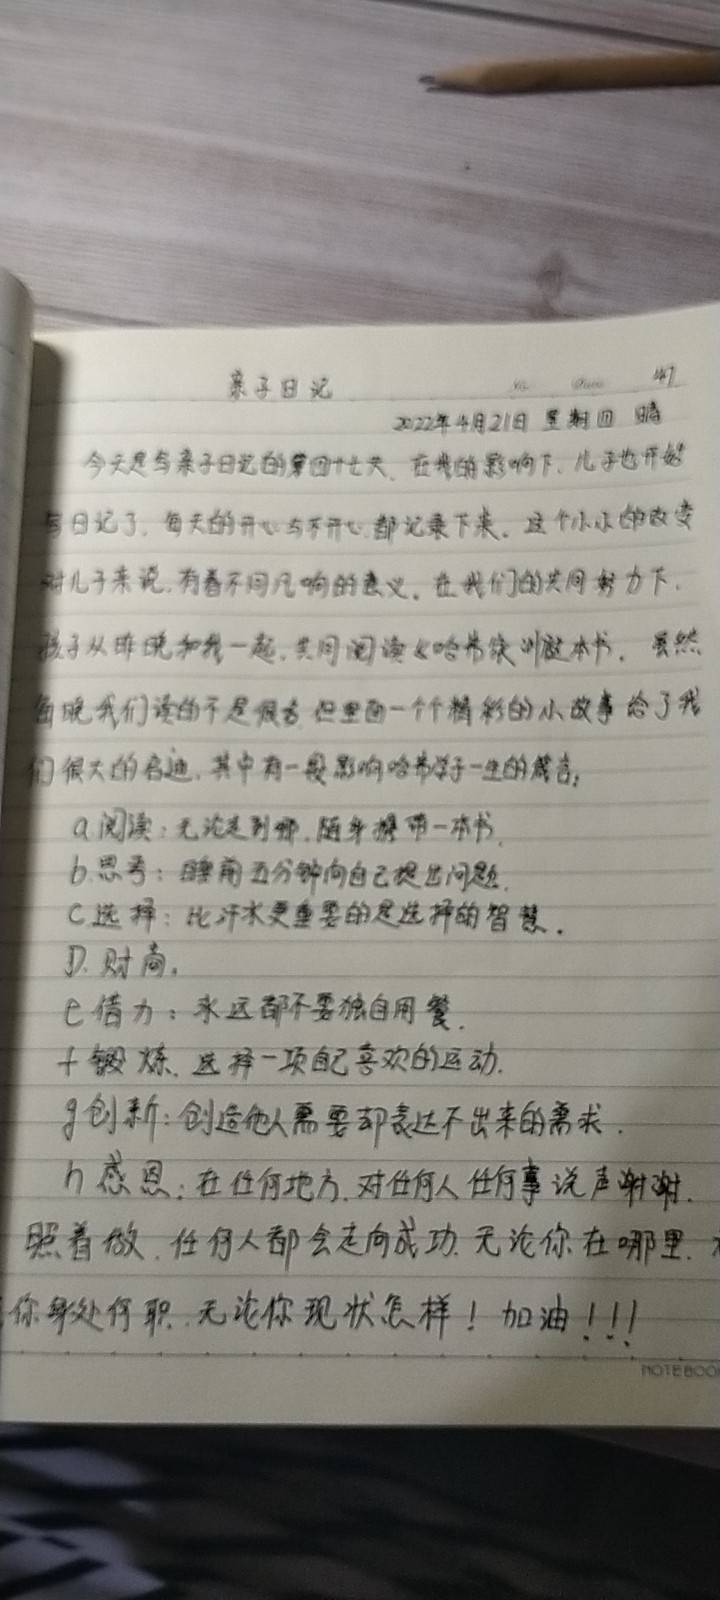 亲子日记
No. Date 47
2022年4月21日 星期四 晴
今天是写亲子日记的第四十七天、在我的影响下、儿子也开始
写日记了、每天的开心与不开心、都记录下来。这个小小的改变
对儿子来说、有着不同凡响的意义。在我们的共同努力下、
孩子从昨晚和我一起、共同阅读《哈弗候训》这本书。虽然
每晚我们读的不是很多、但里面一个个精彩的小故事给了我
们很大的启迪、其中有一段影响哈弗学子一生的箴言;
a.阅读:无论走到哪、随身携带一本书、
b.思考:睡前五分钟向自己提出问题、
C选择:比汗水更重要的是选择的智慧。
D.财商。
e借力:永远都不要独自用餐.
f锻炼、选择一项自己喜欢的运动.
g创新:创造他人需要却表达不出来的需求.
h感恩:在任何地方、对任何人任何事说声谢谢.
照着做、任何人都会走向成功、无论你在哪里、
你身处何职、无论你现状怎样!加油!!!
NOTEBOO